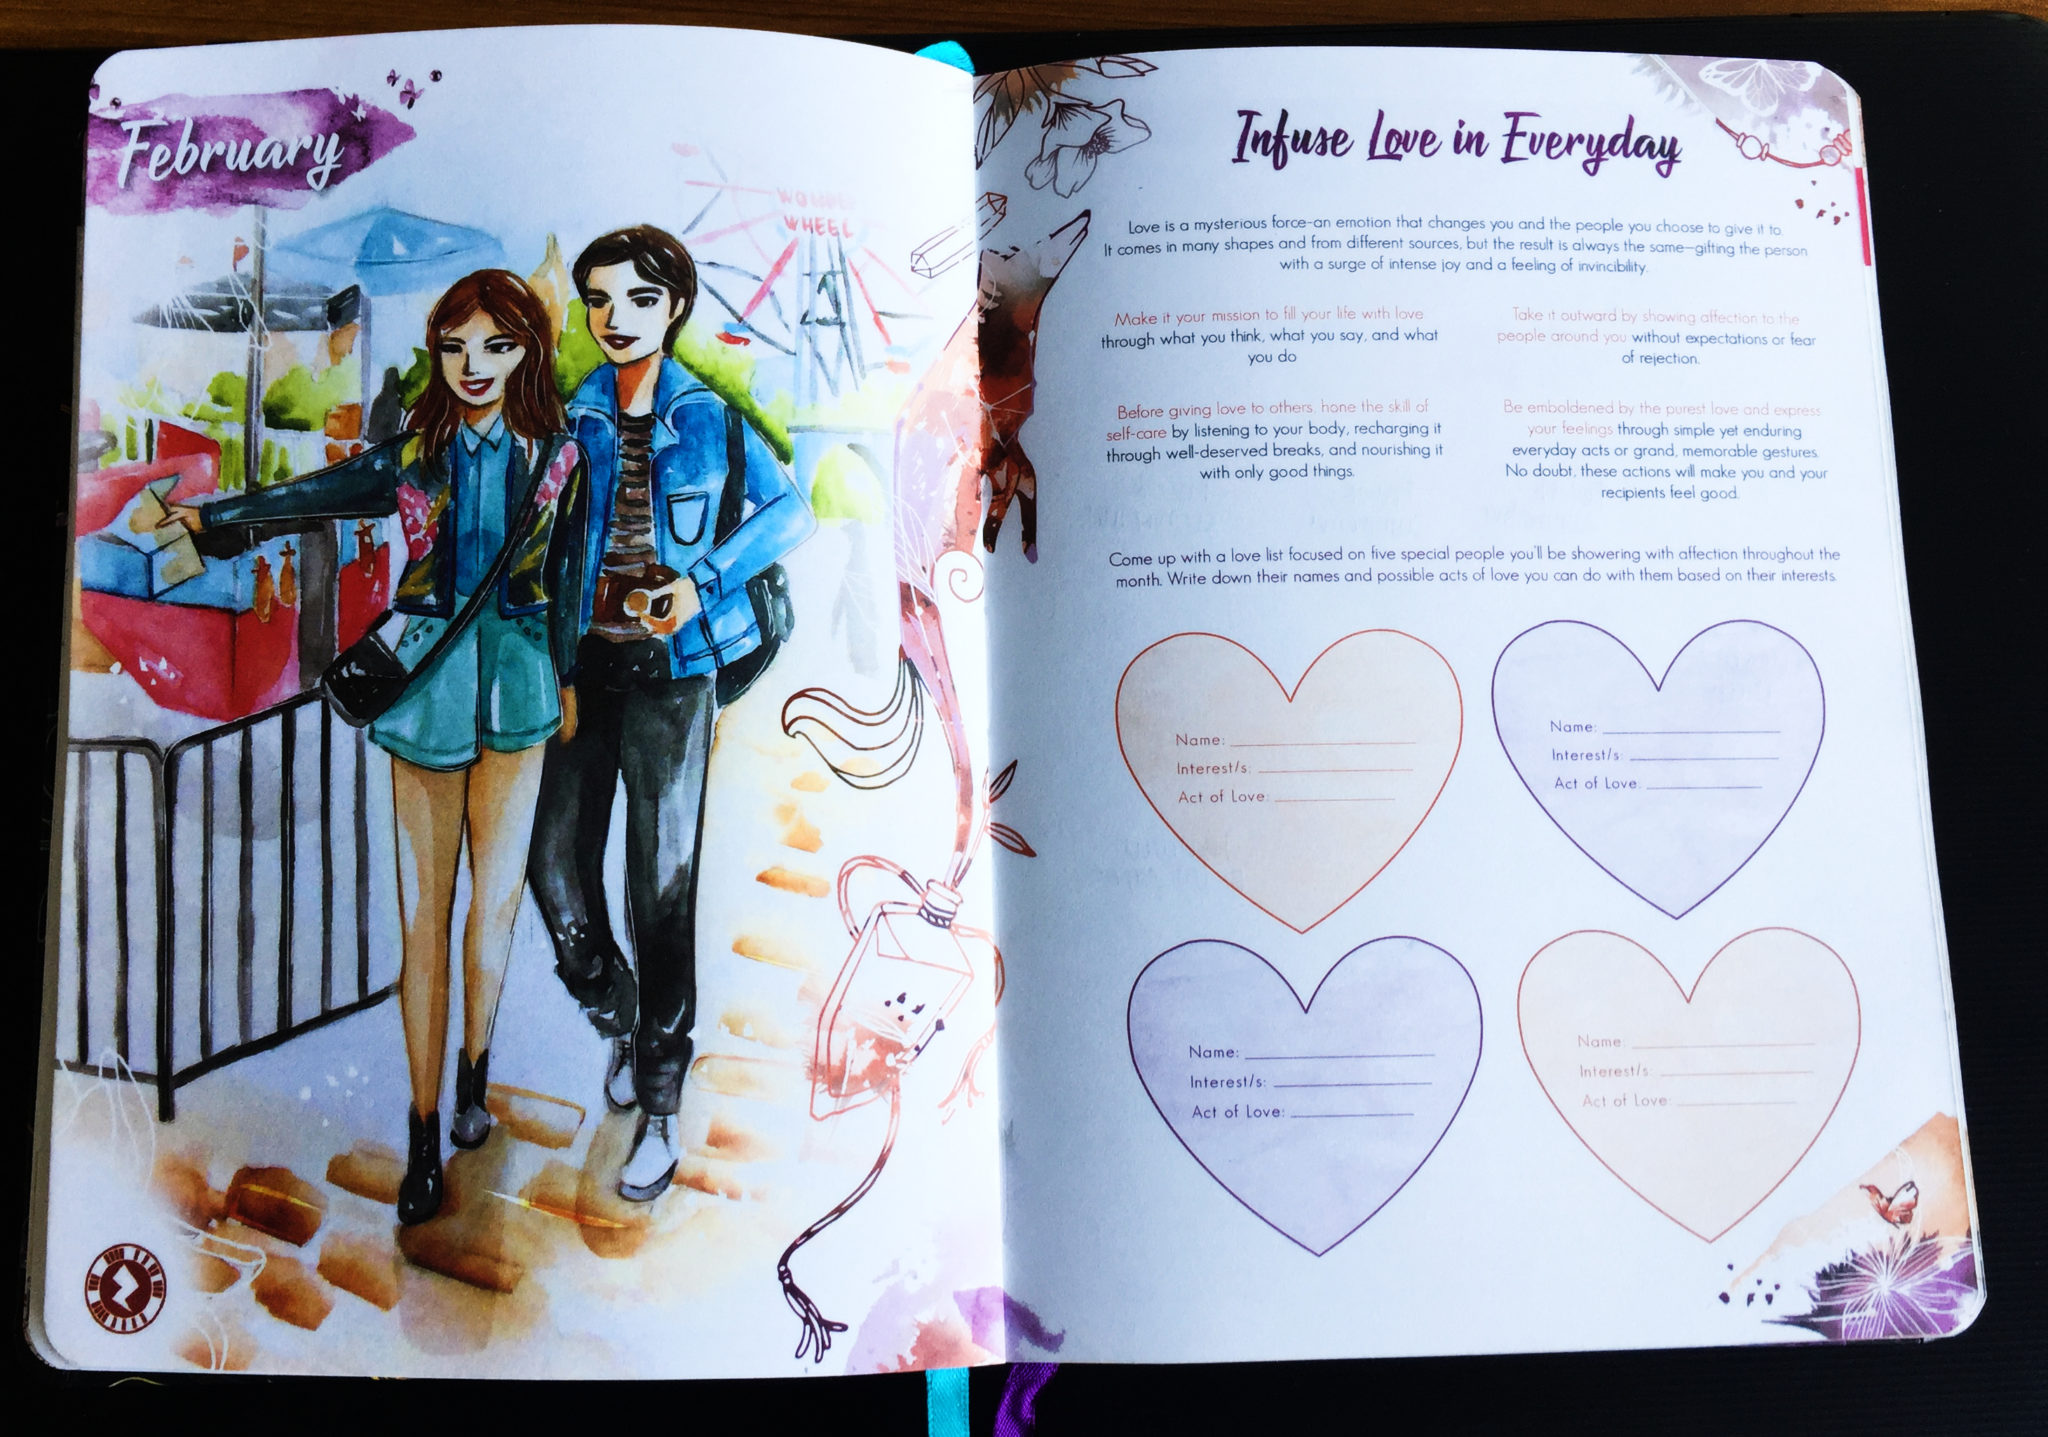 February
WONDER
WHEEL
Infuse Love in Everyday
Love is a mysterious force–an emotion that changes you and the people you choose to give it to.
It comes in many shapes and from different sources, but the result is always the same–gifting the person
with a surge of intense joy and a feeling of invincibility.
Make it your mission to fill your life with love
through what you think, what you say, and what
you do
Take it outward by showing affection to the
people around you without expectations or fear
of rejection.
Before giving love to others, hone the skill of
self-care by listening to your body, recharging it
through well-deserved breaks, and nourishing it
with only good things.
Be emboldened by the purest love and express
your feelings through simple yet enduring
everyday acts or grand, memorable gestures.
No doubt, these actions will make you and your
recipients feel good.
Come up with a love list focused on five special people you'll be showering with affection throughout the
month. Write down their names and possible acts of love you can do with them based on their interests.
Name:
Interest/s:
Act of Love:
Name:
Interest/s:
Act of Love:
Name:
Interest/s:
Act of Love:
Name:
Interest/s:
Act of Love: